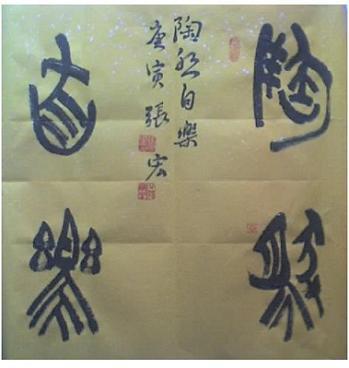 陶然
自樂
陶然自樂
庚寅張宏